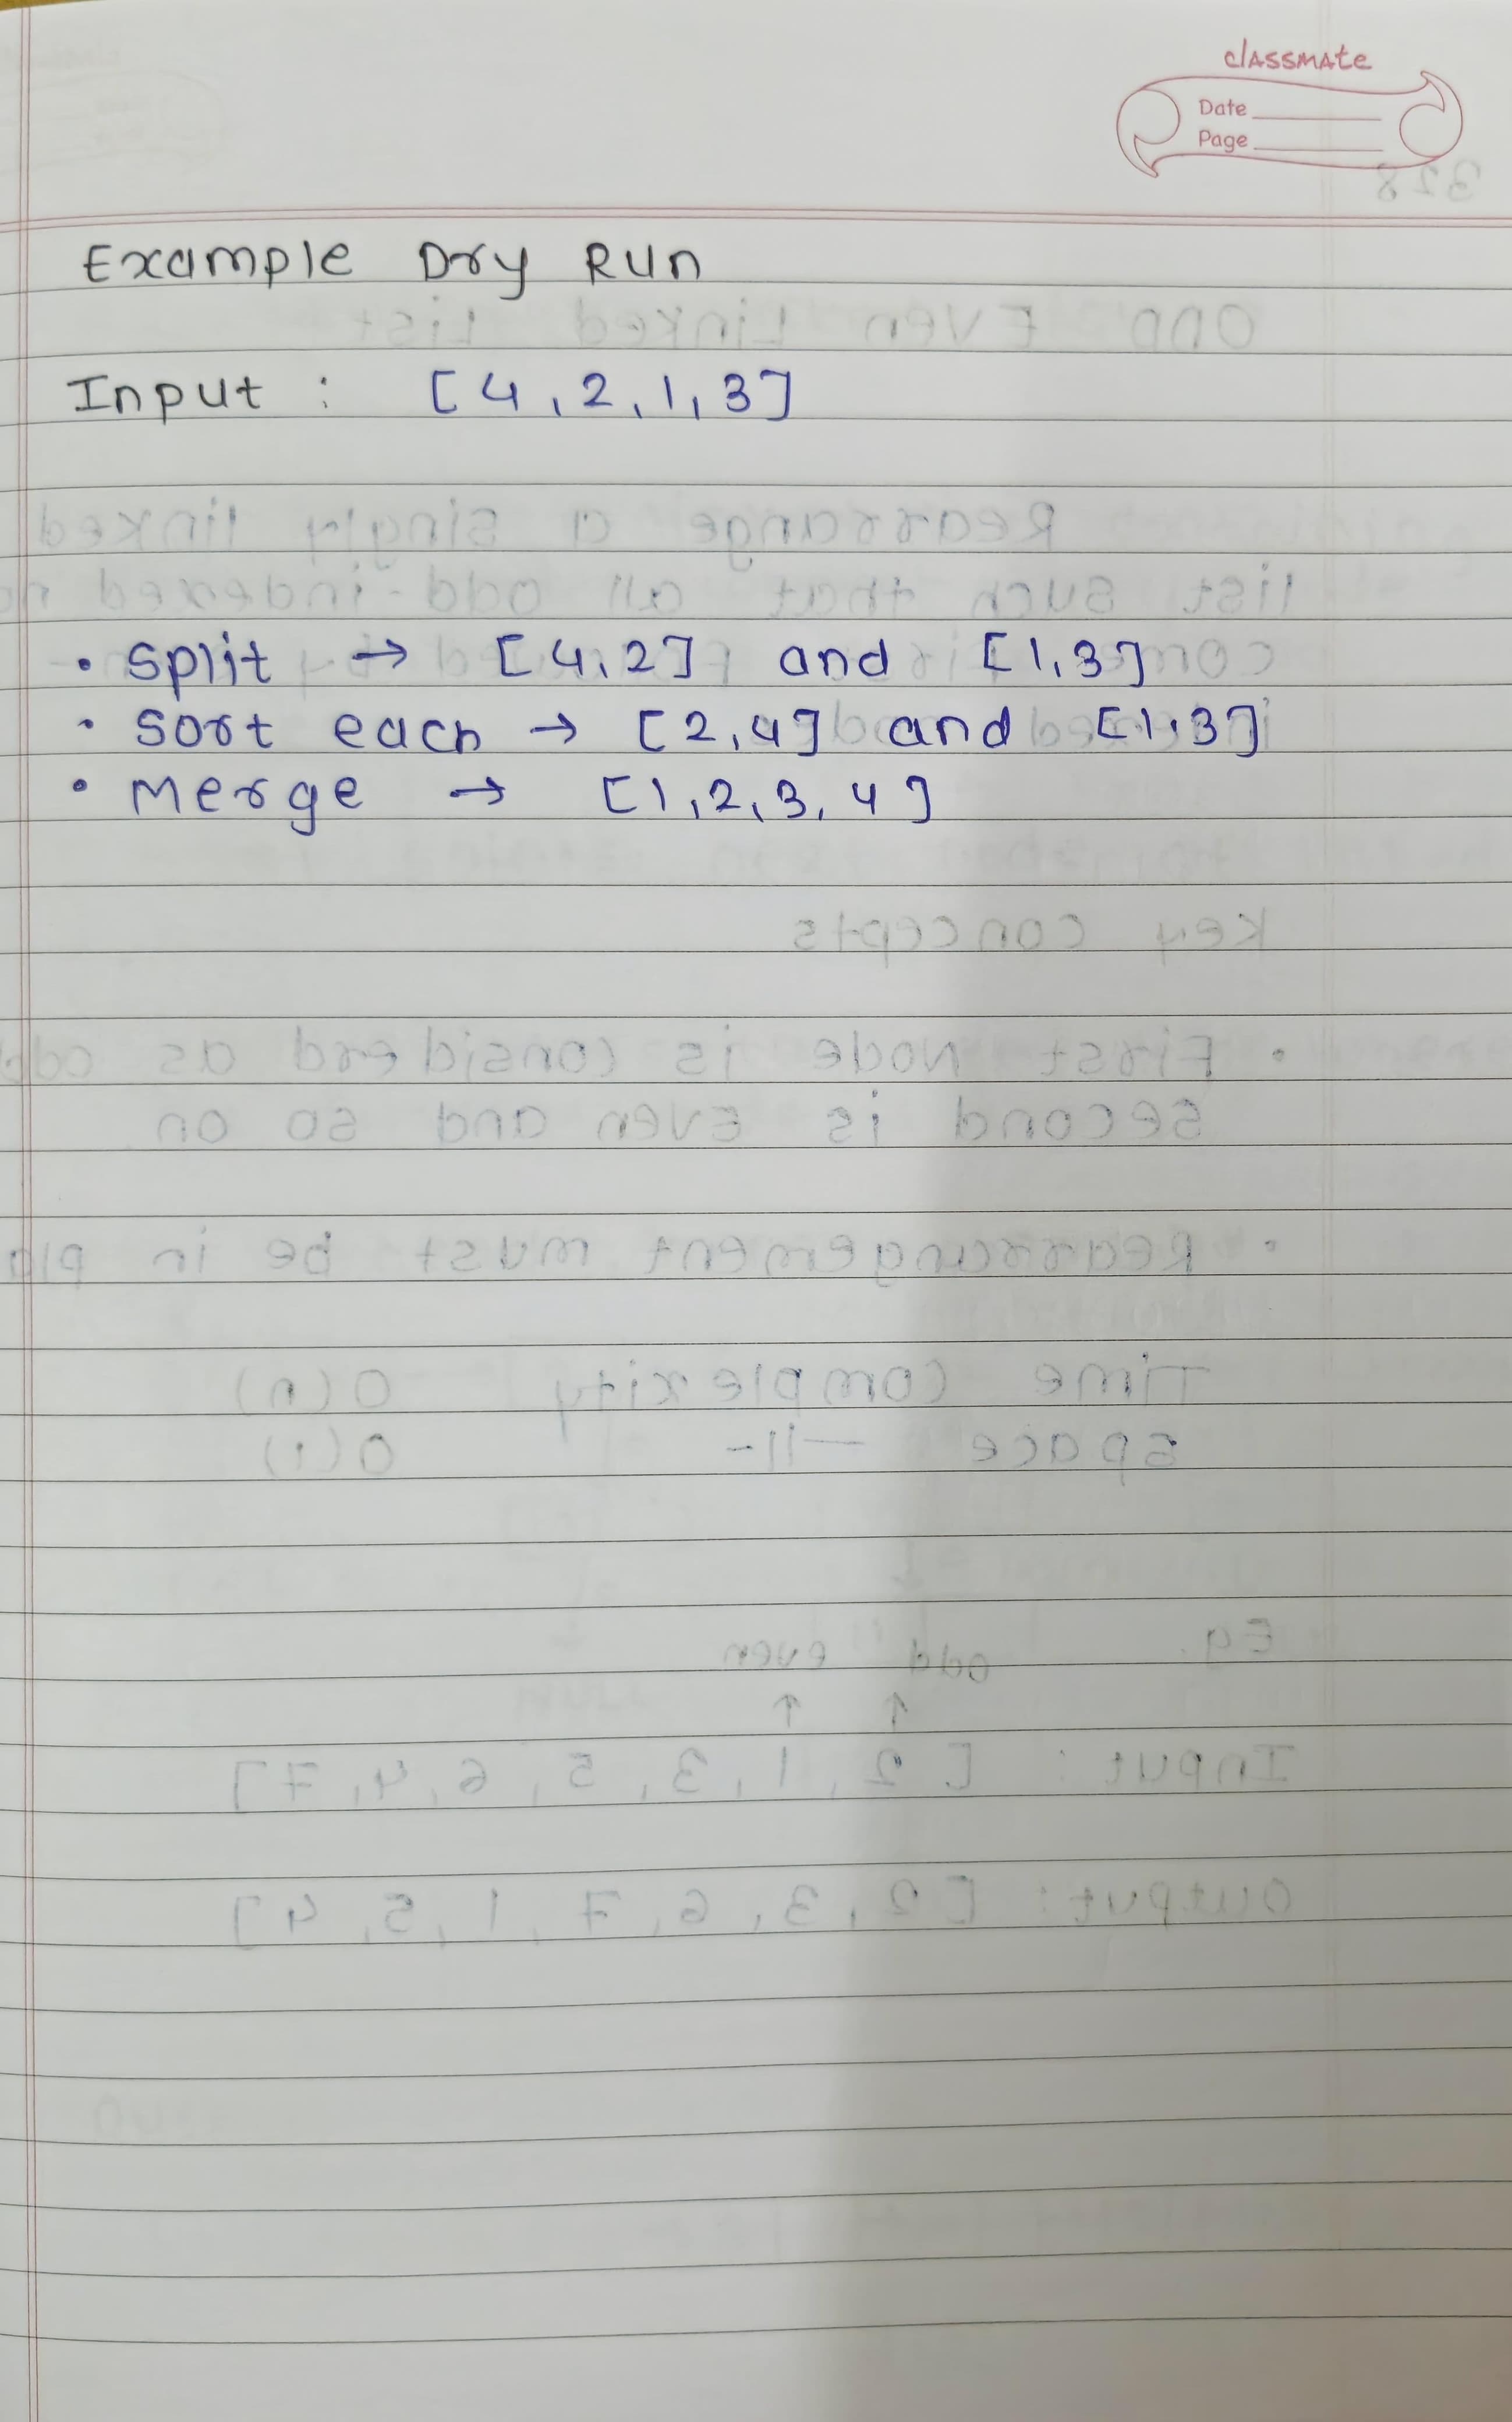 classmate
Date
Page
Example Dry Run
Input : [4, 2, 1, 3]
• Split → [4, 2] and [1, 3]
• Sort each → [2, 4] and [1, 3]
• Merge → [1, 2, 3, 4]